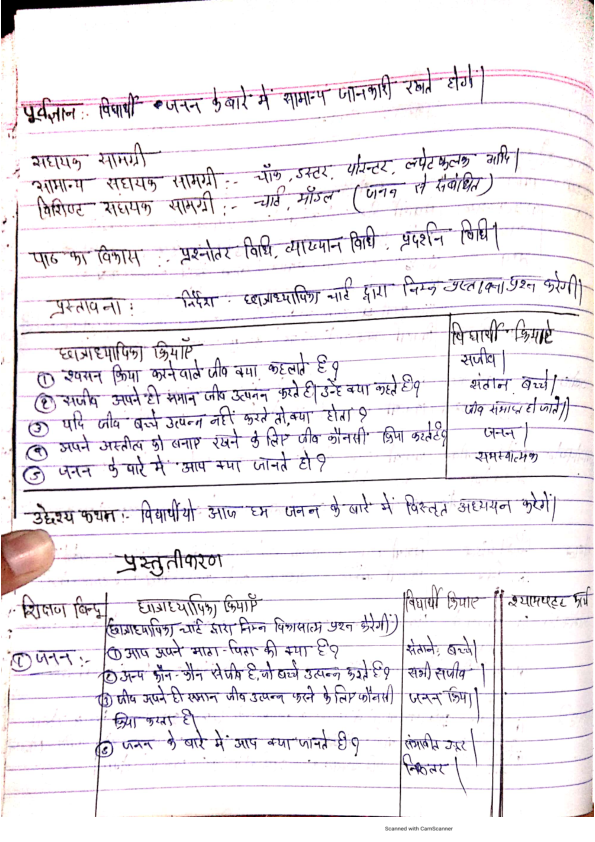 पूर्वज्ञान:- विद्यार्थी जनन के बारे में सामान्य जानकारी रखते होंगे।
सहायक सामग्री
सामान्य सहायक सामग्री:- चॉक, डस्टर, पोइन्टर, लपेट फलक आदि।
विशिष्ट सहायक सामग्री:- चार्ट, मॉडल (जनन से संबंधित)
पाठ का विकास :- प्रश्नोतर विधि, व्याख्यान विधि, प्रदर्शन विधि।
प्रस्तावना: निर्देश: छात्राध्यापिका चार्ट द्वारा निम्न प्रस्तावना प्रश्न करेगी।
छात्राध्यापिका क्रियाएँ विद्यार्थी क्रियाएं
① श्वसन क्रिया करने वाले जीव क्या कहलाते है? सजीव।
② सजीव अपने ही समान जीव उत्पनन करते ही उन्हें क्या कहते है? संतान बच्चे।
③ यदि जीव बच्चे उत्पन्न नहीं करते तो क्या होता? जीव समाप्त हो जाते।
④ अपने अस्तीत्व को बनाए रखने के लिए जीव कौनसी क्रिया करते है? जनन।
⑤ जनन के बारे में आप क्या जानते हो? समस्यात्मक
उद्देश्य कथन:- विद्यार्थीयो आज हम जनन के बारे में विस्तृत अध्ययन करेगें।
प्रस्तुतीकरण
शिक्षण बिन्दु छात्राध्यापिका क्रियाएँ विद्यार्थी क्रियाएं श्यामपट्ट कार्य
(छात्राध्यापिका चार्ट द्वारा निम्न विकासात्म प्रश्न करेगी।)
① जनन:- ① आप अपने माता-पिता की क्या है? संताने, बच्चे।
② अन्य कौन-कौन सजीव है, जो बच्चे उत्पन्न करते है? सभी सजीव
③ जीव अपने ही समान जीव उत्पन्न करने के लिए कौनसी जनन क्रिया।
क्रिया करता है।
जनन के बारे में आप क्या जानते है? संभावित उत्तर।
निरूतर।
Scanned with CamScanner